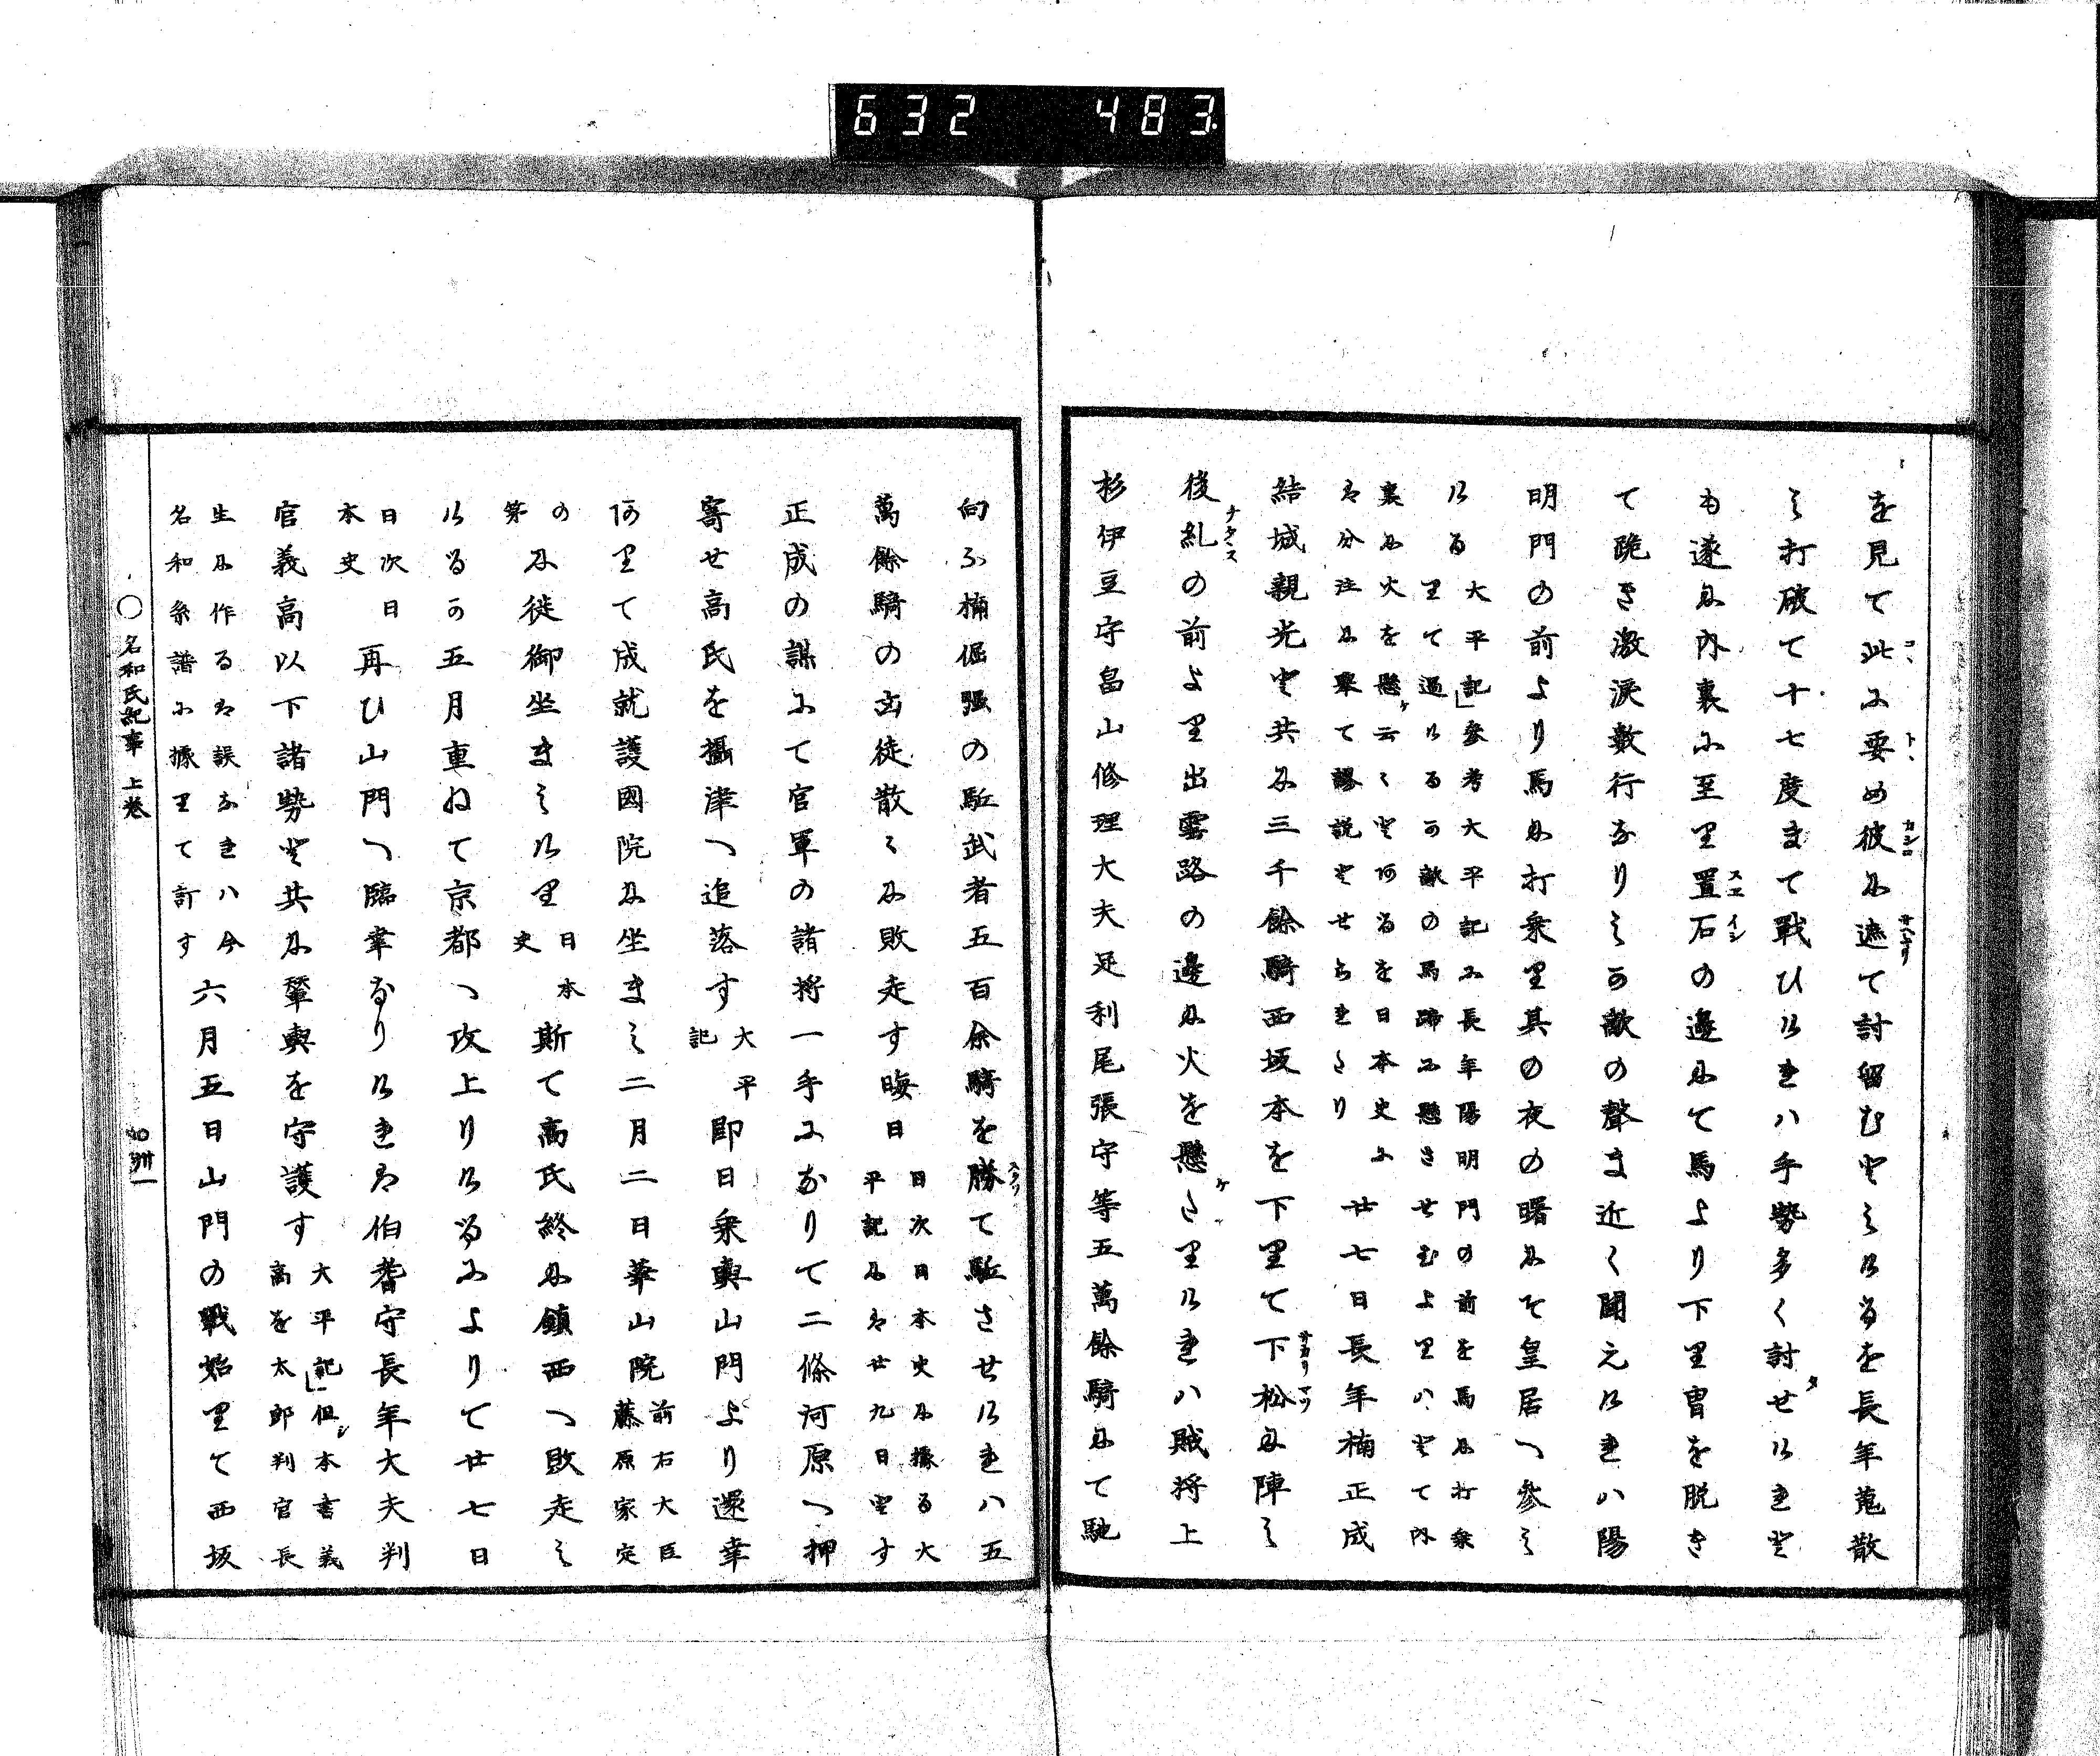 632 483
を見て此に要め彼に遮て討留むとしけるを長年蒐散
し打破て十七度まて戦ひけれハ手勢多く討せけれと
も遂に内裏に至り置石の邊にて馬より下り冑を脱き
て跪き激涙數行なりしか敵の聲ま近く聞えけれハ陽
明門の前より馬に打乗り其の夜の曙にそ皇居へ參し
ける
大平記」參考大平記に長年陽明門の前を馬に打乗
りて過けるか敵の馬蹄に懸させむよりハとて内
裏に火を懸云〻とあるを日本史に
は分注に擧て謬説とせられたり
廿七日長年楠正成
結城親光と共に三千餘騎西坂本を下りて下松に陣し
後糺の前より出雲路の邊に火を懸たりけれハ賊将上
杉伊豆守畠山修理大夫足利尾張守等五萬餘騎にて馳
向ふ楠倔強の駈武者五百余騎を勝て駈させけれハ五
萬餘騎の凶徒散〻に敗走す晦日
日次日本史に據る大
平記には廿九日とす
正成の謀にて官軍の諸将一手になりて二條河原へ押
寄せ高氏を攝津へ追落す
大平
記
即日乗輿山門より還幸
ありて成就護國院に坐まし二月二日華山院
前右大臣
藤原家定
の
第
に徙御坐ましけり
日本
史
斯て高氏終に鎮西へ敗走し
けるか五月重ねて京都へ攻上りけるによりて廿七日
日次日
本史
再ひ山門へ臨幸なりけれは伯耆守長年大夫判
官義高以下諸勢と共に輦輿を守護す
大平記」但本書義
高を太郎判官長
生に作るは誤なれハ今
名和系譜に據りて訂す
六月五日山門の戦始りて西坂
〇名和氏紀事 上巻